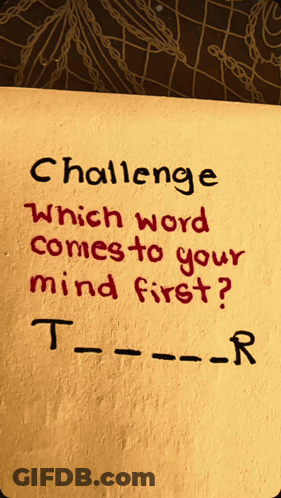 Challenge
Which word
comes to your
mind first?
T_ _ _ _ _R
GIFDB.com